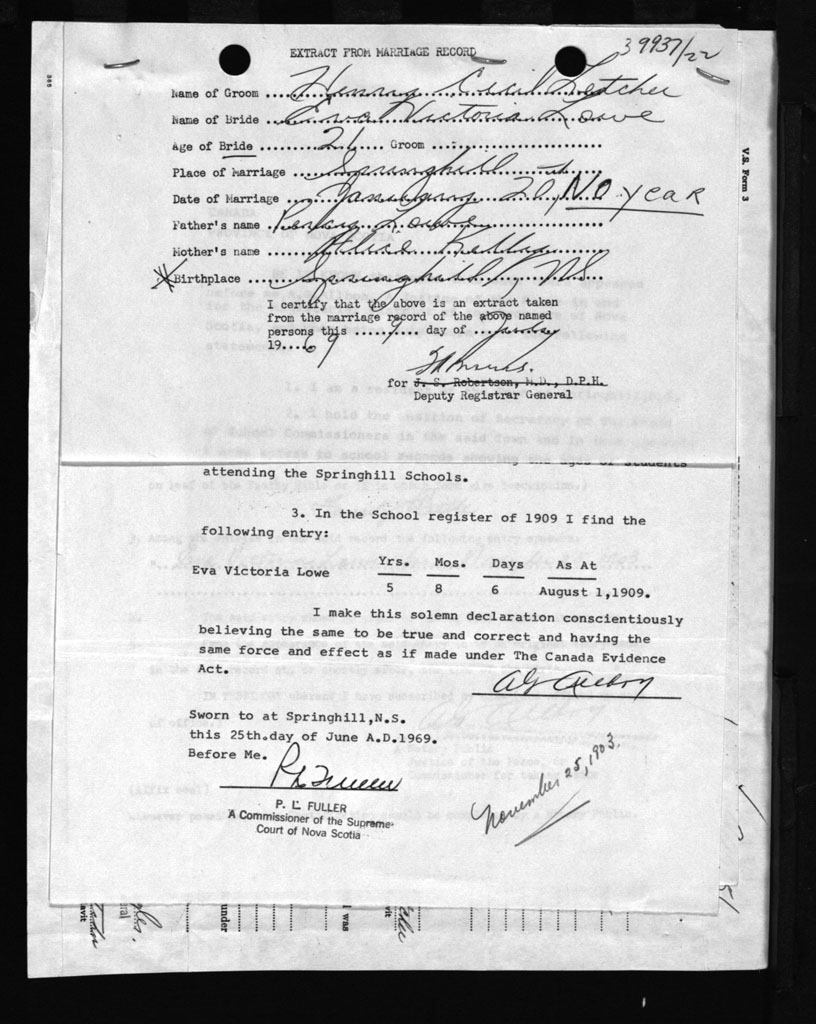 39937/22
EXTRACT FROM MARRIAGE RECORD
Name of Groom Henry Cecil Letcher
Name of Bride Eva Victoria Lowe
Age of Bride 21 Groom
Place of Marriage Springhill
Date of Marriage January 20, No year
Father's name Percy Lowe
Mother's name Alice Kelly
Birthplace Springhill NS
I certify that the above is an extract taken
from the marriage record of the above named
persons this 9 day of January
19 69
for J. S. Robertson, M.D., D.P.H.
Deputy Registrar General
V.S. Form 3
attending the Springhill Schools.
3. In the School register of 1909 I find the
following entry:
Yrs. Mos. Days As At
Eva Victoria Lowe
5 8 6 August 1,1909.
I make this solemn declaration conscientiously
believing the same to be true and correct and having the
same force and effect as if made under The Canada Evidence
Act.
Sworn to at Springhill,N.S.
this 25th.day of June A.D.1969.
Before Me.
P. L. FULLER
A Commissioner of the Supreme
Court of Nova Scotia
November 25, 1903.
under
I was